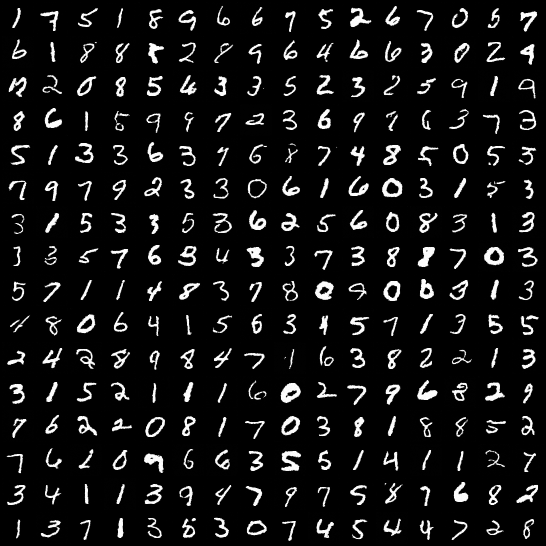 1 7 5 1 8 9 6 6 7 5 2 6 7 0 5 7
6 1 8 8 5 2 8 9 6 4 6 6 3 0 2 9
2 0 8 5 4 3 3 5 2 3 2 5 9 1 9
8 6 1 5 9 9 7 2 3 6 9 9 6 3 7 3
5 1 3 3 6 3 9 6 8 7 4 8 5 0 5 5
7 9 7 9 2 3 3 0 6 1 6 0 3 1 5 3
3 1 5 3 3 5 3 6 2 5 6 0 8 3 1 3
3 3 5 7 6 3 4 3 3 7 3 8 8 7 0 3
5 7 1 1 4 8 3 7 8 0 9 0 6 3 1 3
4 8 0 6 4 1 5 6 3 1 5 7 1 3 5 5
2 4 2 8 9 8 4 7 1 6 3 8 2 2 1 3
3 1 5 2 1 1 1 6 0 2 7 9 6 8 2 9
7 6 2 2 0 8 1 7 0 3 8 1 8 8 5 2
7 6 2 0 9 6 6 3 5 5 1 4 1 1 2 7
3 4 1 1 3 9 4 7 9 7 5 8 9 6 8 2
1 3 7 1 3 8 3 0 7 4 5 4 4 7 2 8